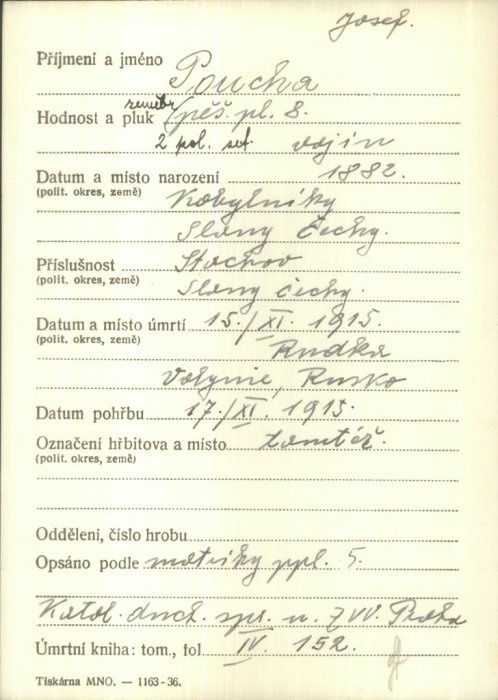 Josef.
Příjmení a jméno Poucha
Hodnost a pluk zeměbr. pěš. pl. 8.
2 pol. set. vojín
Datum a místo narození 1882.
(polit. okres, země) Kobylníky
Slaný Čechy.
Příslušnost Stochov
(polit. okres, země) Slaný Čechy.
Datum a místo úmrtí 15./XI. 1915.
(polit. okres, země) Rudka
Volynie, Rusko
Datum pohřbu 17./XI. 1915.
Označení hřbitova a místo tamtéž.
(polit. okres, země)
Oddělení, číslo hrobu
Opsáno podle matriky ppl. 5.
Katol. duch. spr. u. ZVV. Praha
Úmrtní kniha: tom., fol IV. 152.
Tiskárna MNO. — 1163-36.